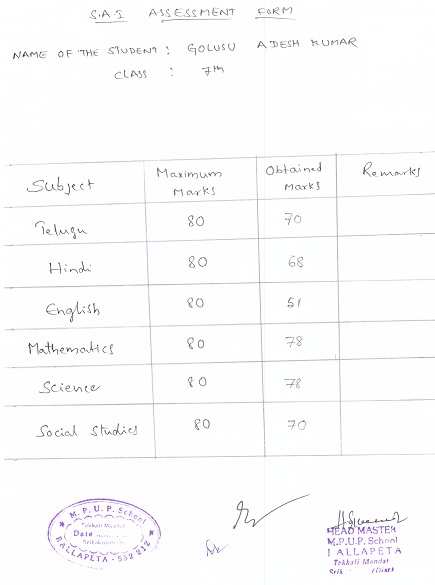 S.A.I ASSESSMENT FORM
NAME OF THE STUDENT : GOLUSU ADESH KUMAR
CLASS : 7th
Subject Maximum Marks Obtained Marks Remarks
Telugu 80 70
Hindi 80 68
English 80 51
Mathematics 80 78
Science 80 78
Social Studies 80 70
M.P.U.P. School
Tekkali Mandal
Date
ALLAPETA - 532 212
HEAD MASTER
M.P.U.P. School
ALLAPETA
Tekkali Mandal
(Dist)